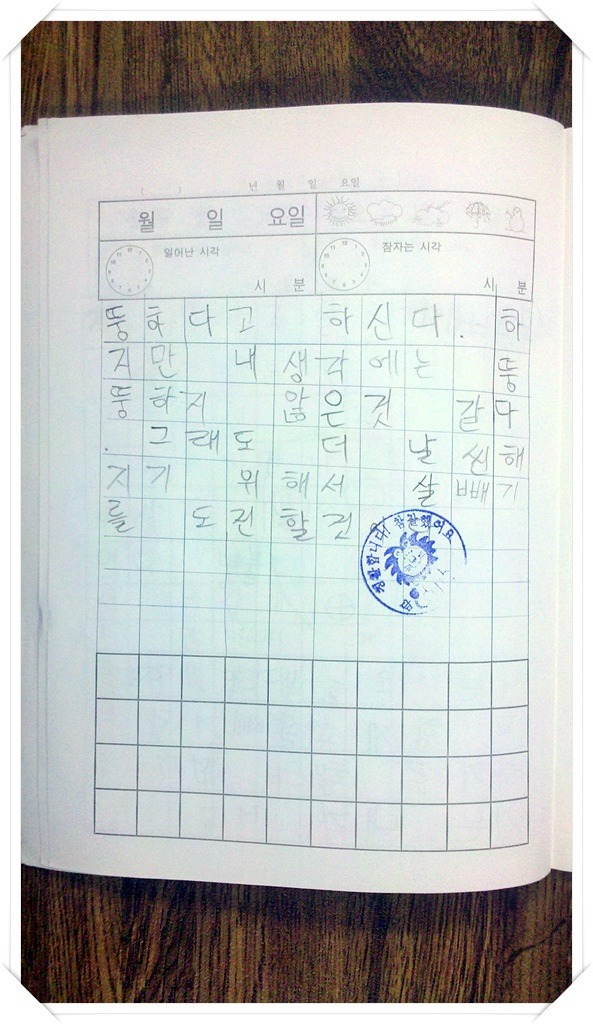 년 월 일 요일
월 일 요일
일어난 시각 잠자는 시각
시 분 시 분
뚱하다고 하신다. 하
지만 내 생각에는 뚱
뚱하지 않은것 같다
. 그래도 더 날씬해
지기 위해서 살빼기
를 도전할건
참 잘했어요